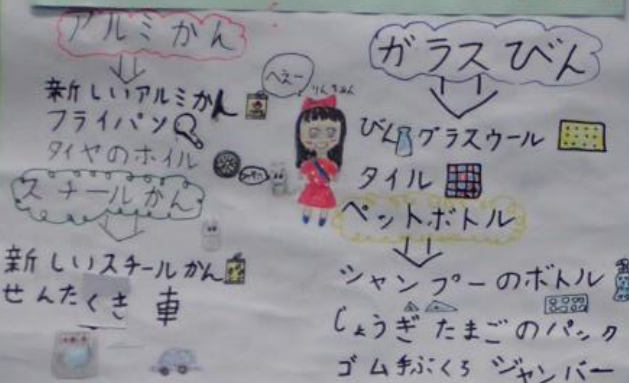 アルミかん
新しいアルミかん
フライパン
タイヤのホイル
スチールかん
新しいスチールかん
せんたくき 車
へえー
りんちゃん
ガラスびん
びん グラスウール
タイル
ペットボトル
シャンプーのボトル
じょうぎ たまごのパック
ゴム手ぶくろ ジャンバー